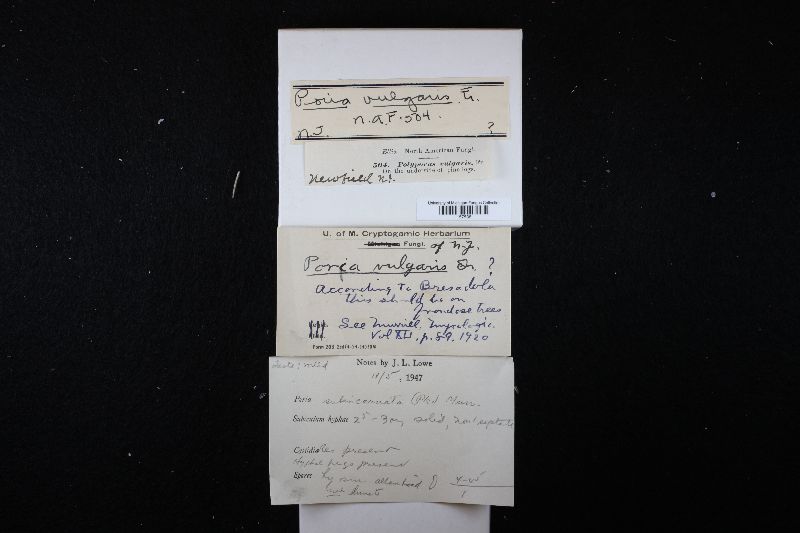 Poria vulgaris Fr.
N.A.F. 504.
N.J. ?
Ellis. North American Fungi.
504. Polyporus vulgaris, Fr
On the underside of pine logs.
Newfield N.J.
University of Michigan Fungus Collection
U. of M. Cryptogamic Herbarium
Michigan Fungi. of N.J.
Poria vulgaris Fr. ?
According to Bresadola
this should be on
frondose trees
See Murrill, Mycologia.
Vol XII, p. 89. 1920
Notes by J. L. Lowe
1947
Poria subincarnata (Pk) Murr.
Subiculum hyphae solid, non septate
Cystidioles present
Hyphal pegs present
Spores hyaline allantoid